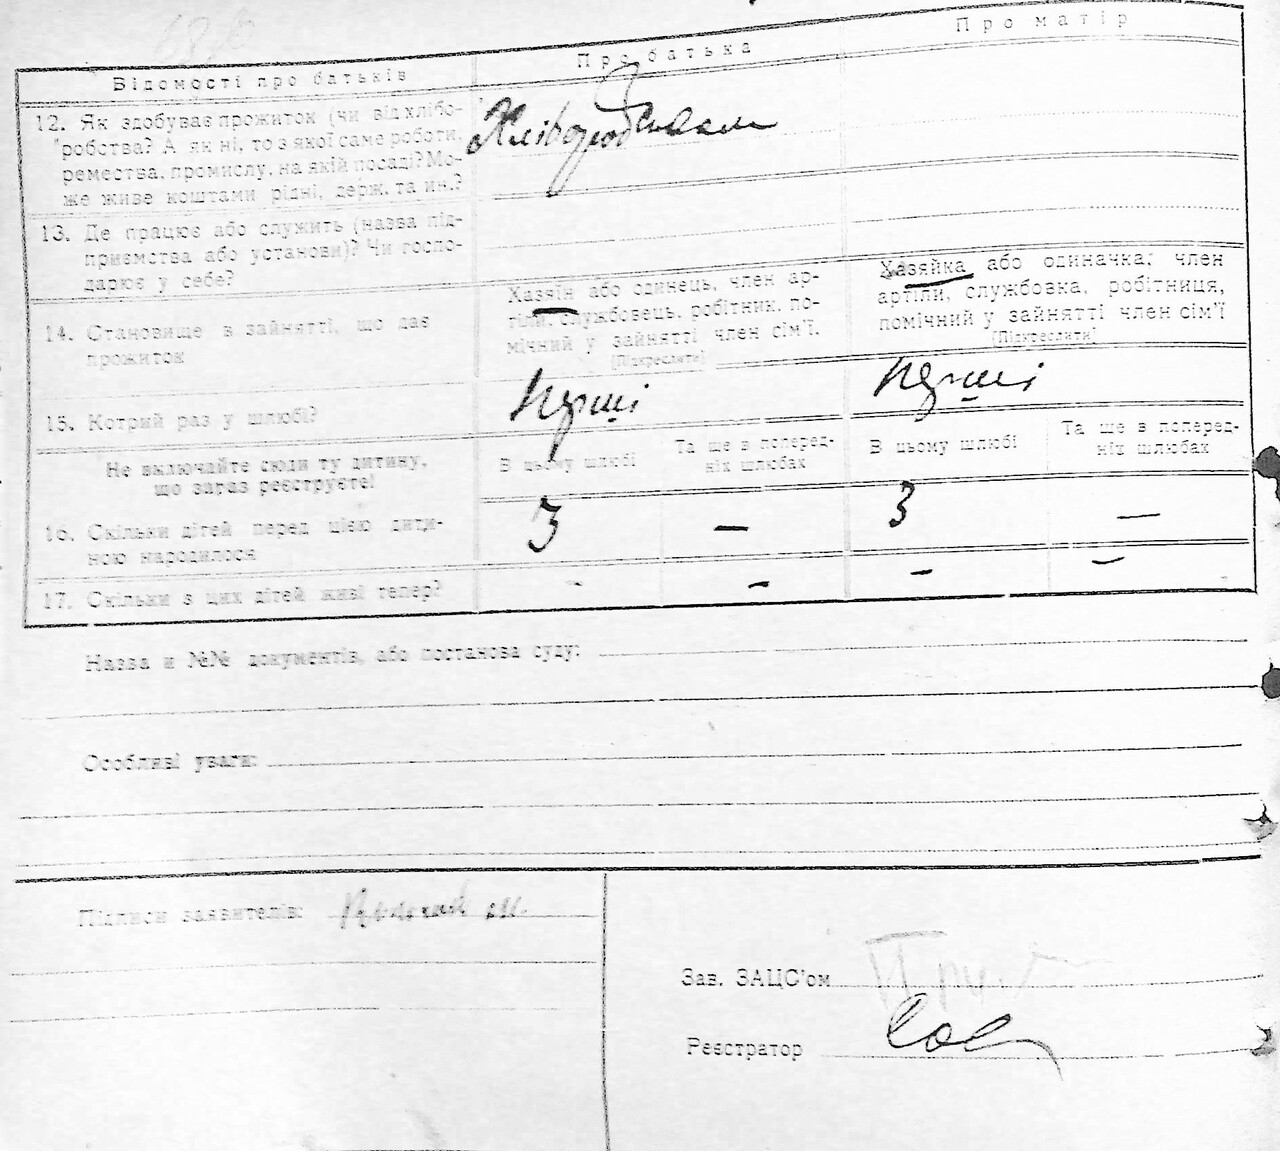 Відомості про батьків
Про батька
Про матір
12. Як здобуває прожиток (чи від хлібо-
робства? А як ні, то з якої саме роботи,
ремества, промислу, на якій посаді? Мо-
же живе коштами рідні, держ. та ин.?
Хліборобством
13. Де працює або служить (назва під-
приємства або установи)? Чи госпо-
дарює у себе?
14. Становище в зайнятті, що дає
прожиток
Хазяїн або одинець, член ар-
тілі, службовець, робітник, по-
мічний у зайнятті член сім'ї.
(Підкреслити)
Хазяйка або одиначка, член
артіли, службовка, робітниця,
помічний у зайнятті член сім'ї
(Підкреслити)
15. Котрий раз у шлюбі?
перші
перші
Не включайте сюди ту дитину,
що зараз реєструєте!
В цьому шлюбі
Та ще в поперед-
ніх шлюбах
В цьому шлюбі
Та ще в поперед-
ніх шлюбах
16. Скільки дітей перед цією дити-
ною народилося
3 — 3 —
17. Скільки з цих дітей живі тепер?
- - - -
Назва и №№ документів, або постанова суду:
Особливі уваги:
Підписи заявителів:
Зав. ЗАЦС'ом
Реєстратор